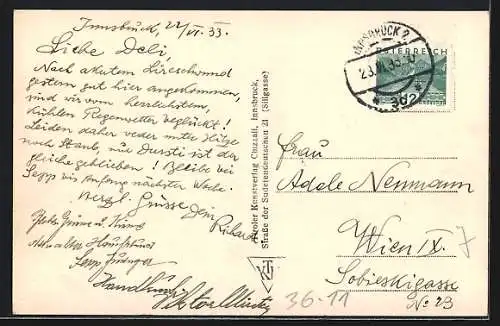 Innsbruck, 22/VI. 33.
Liebe Deli,
Nach akutem Lireschwund
gestern gut hier angekommen,
sind wir vom herrlichsten,
kühlen Regenwetter beglückt!
Leiden daher weder unter Hitze
noch Staub, nur Dursti ist der
gleiche geblieben! Bleibe bei
Sepp bis Anfang nächster Woche.
Herzl. Grüsse Dein
Richard
Handkuss
Tiroler Kunstverlag Chizzali, Innsbruck,
Straße der Sudetendeutschen 21 (Sillgasse)
INNSBRUCK 2
ÖSTERREICH
* 3d2 *
Frau
Adele Neumann
Wien IX.
7
Sobieskigasse
No 23
36-11